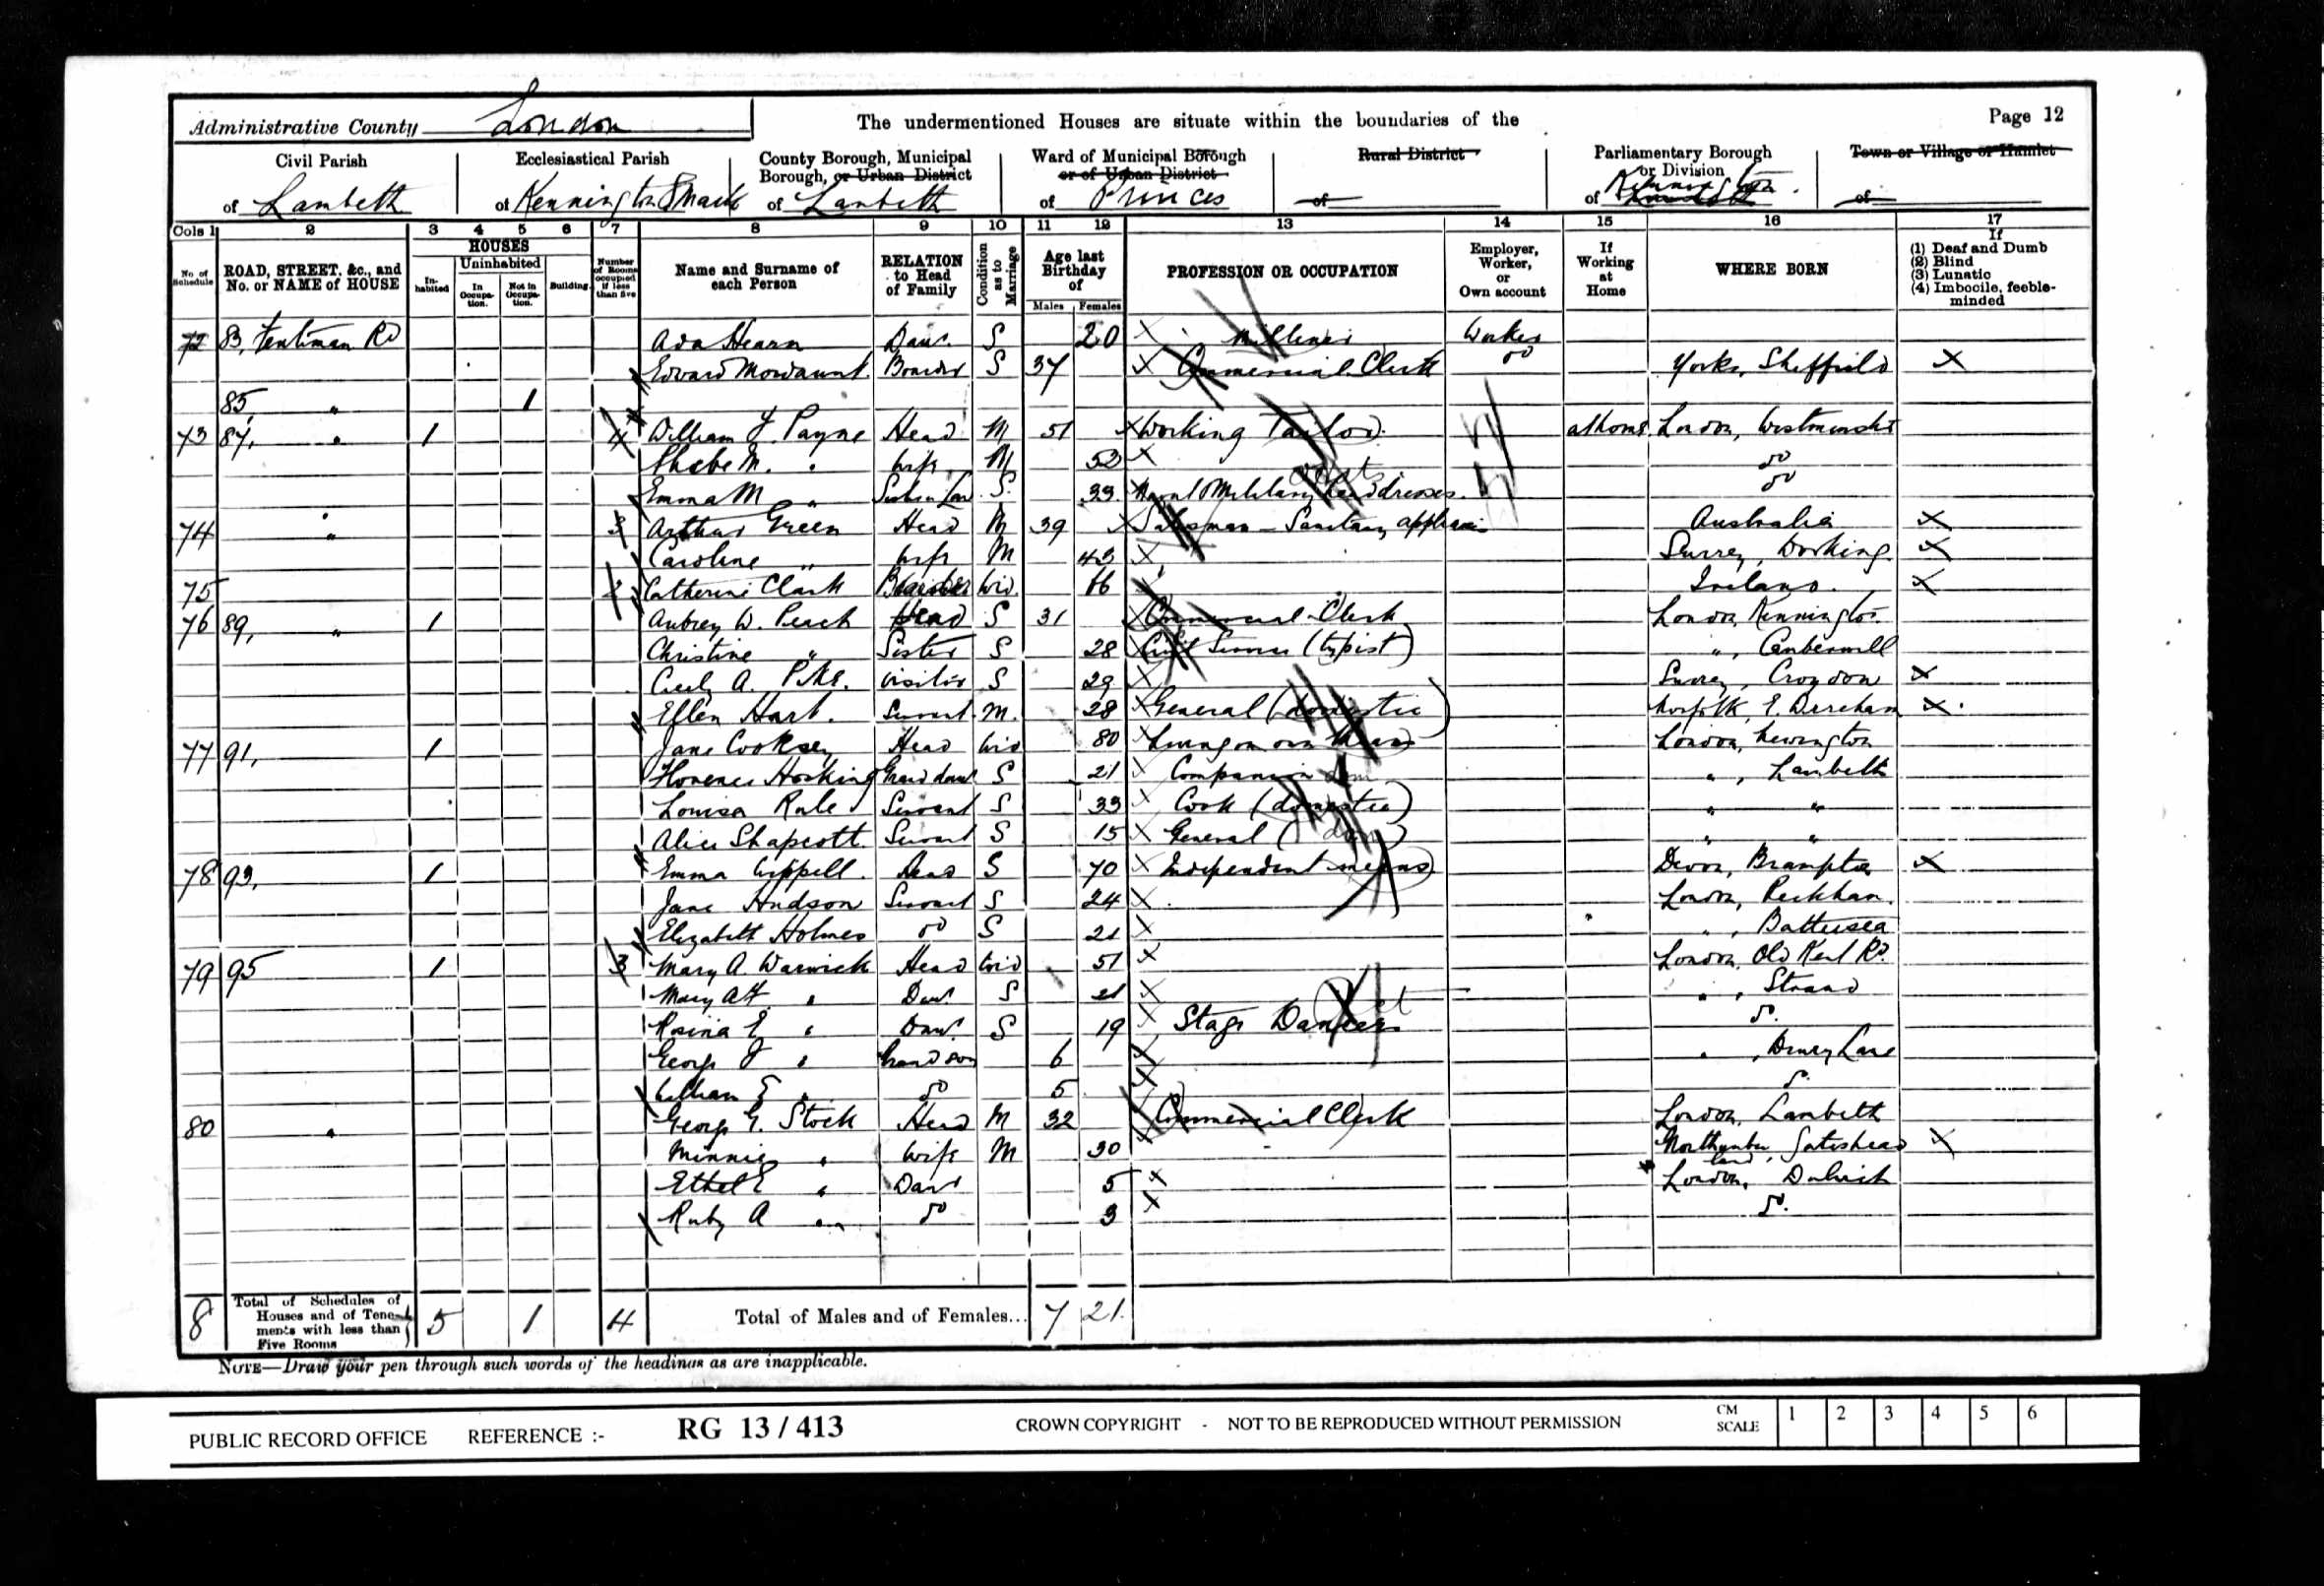 Administrative County London The undermentioned Houses are situate within the boundaries of the Page 12
Civil Parish Ecclesiastical Parish County Borough, Municipal Borough, or Urban District Ward of Municipal Borough or of Urban District Rural District Parliamentary Borough or Division Town or Village or Hamlet
of Lambeth of Kennington S Mark of Lambeth of Princes of of Kennington of
Cols 1 2 3 4 5 6 7 8 9 10 11 12 13 14 15 16 17
No of Schedule ROAD, STREET, &c., and No. or NAME of HOUSE HOUSES Inhabited Uninhabited In Occupation. Not in Occupation. Building. Number of Rooms occupied if less than five Name and Surname of each Person RELATION to Head of Family Condition as to Marriage Age last Birthday of Males Females PROFESSION OR OCCUPATION Employer, Worker, or Own account If Working at Home WHERE BORN If (1) Deaf and Dumb (2) Blind (3) Lunatic (4) Imbecile, feeble-minded
72 83, Tentiman Rd Ada Hearn Daur. S 20 X Milliner Worker
Edward Mordaunt Boarder S 37 X Commercial Clerk do Yorks, Sheffield X
85, " 1
73 87, " 1 4 William J. Payne Head M 51 X Working Tailor at home London, Westminster
Phebe M. " Wife M 52 X do
Emma M " Sister in Law S. 33 Naval & Military do
74 " 3 Arthur Green Head M 39 X Salesman - Sanitary Australia X
Caroline " Wife M 43 X Surrey, Dorking X
75 Catherine Clark Wid. 66 X Ireland. X
76 89, " 1 Aubrey W. Peach Head S 31 X Commercial Clerk London, Kennington
Christine " Sister S 28 X Civil Service (typist) ", Camberwell
A. Visitor S 29 X Surrey, Croydon X
Ellen Hart. Servant M. 28 X General (domestic) Norfolk, E. Dereham X
77 91, 1 Jane Cooksey Head Wid 80 X Living on own means London, Newington
Florence Hosking Grand daur S 21 X Companion dom ", Lambeth
Louisa Rule Servant S 33 X Cook (domestic) " "
Alice Shapcott. Servant S 15 X General (dom) " "
78 93, 1 Emma Wippell. Head S 70 X Independent means) Devon, Brampton X
Jane Hudson Servant S 24 X London, Peckham.
Elizabeth Holmes do S 21 X ", Battersea
79 95 1 3 Mary A. Warwick Head Wid 51 X London, Old Kent Rd.
Mary A H " Daur S 21 X ", Strand
Rosina E " Daur. S 19 X Stage Dancer do.
George J " Grandson 6 X ", Drury Lane
William E " do 5 X do.
80 " George G. Stock Head M 32 X Commercial Clerk London, Lambeth
Minnie " Wife M 30 X Northumberland, Gateshead X
Ethel E " Daur 5 X London, Dulwich
Ruby A " do 3 X do.
8 Total of Schedules of Houses and of Tenements with less than Five Rooms 5 1 4 Total of Males and of Females... 7 21.
NOTE—Draw your pen through such words of the headings as are inapplicable.
PUBLIC RECORD OFFICE REFERENCE :- RG 13 / 413 CROWN COPYRIGHT - NOT TO BE REPRODUCED WITHOUT PERMISSION CM SCALE 1 2 3 4 5 6